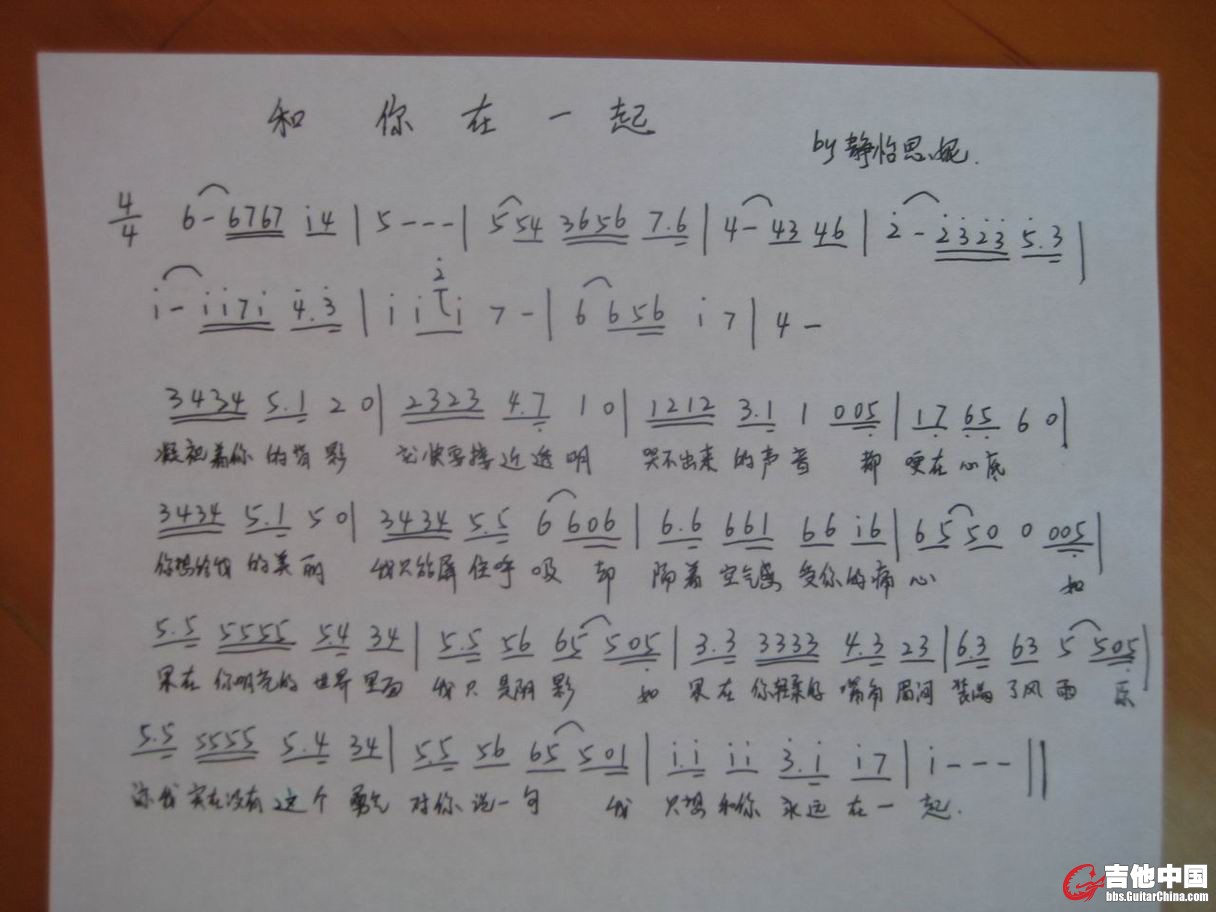 和 你 在 一 起
by 静怡思妮.
4/4 6 - 6767 i4 | 5 - - - | 5 54 3656 7.6 | 4 - 43 46 | 2̇ - 2̇3̇2̇3̇ 5̇.3̇ |
i - ii7i 4̇.3̇ | i i 2̇ i 7 - | 6 656 i 7 | 4 -
3434 5.1 2 0 | 2323 4.7̣ 1 0 | 1212 3.1 1 005̣ | 17̣ 6̣5̣ 6 0 |
凝视着你 的背影 它快要接近透明 哭不出来 的声音 都 哽在心底
3434 5.1 5 0 | 3434 5.5 6 606 | 6.6 661 66 i6 | 65 50 0 005̣ |
你想给我 的美丽 我只能屏住呼吸 却 隔着 空气感受你的痛心 如
5.5 5555 54 34 | 5.5 56 65 505̣ | 3.3 3333 4.3 23 | 6.3 63 5 505̣ |
果在 你明亮的 世界里面 我只是阴影 如 果在 你轻柔的 嘴角眉间 装满了风雨 原
5.5 5555 5.4 34 | 5.5 56 65 501 | i.i ii 3̇.i i7 | i - - - ||
谅我 实在没有 这个 勇气 对你说一句 我 只想和你 永远在一起.
吉他中国
bbs.GuitarChina.com